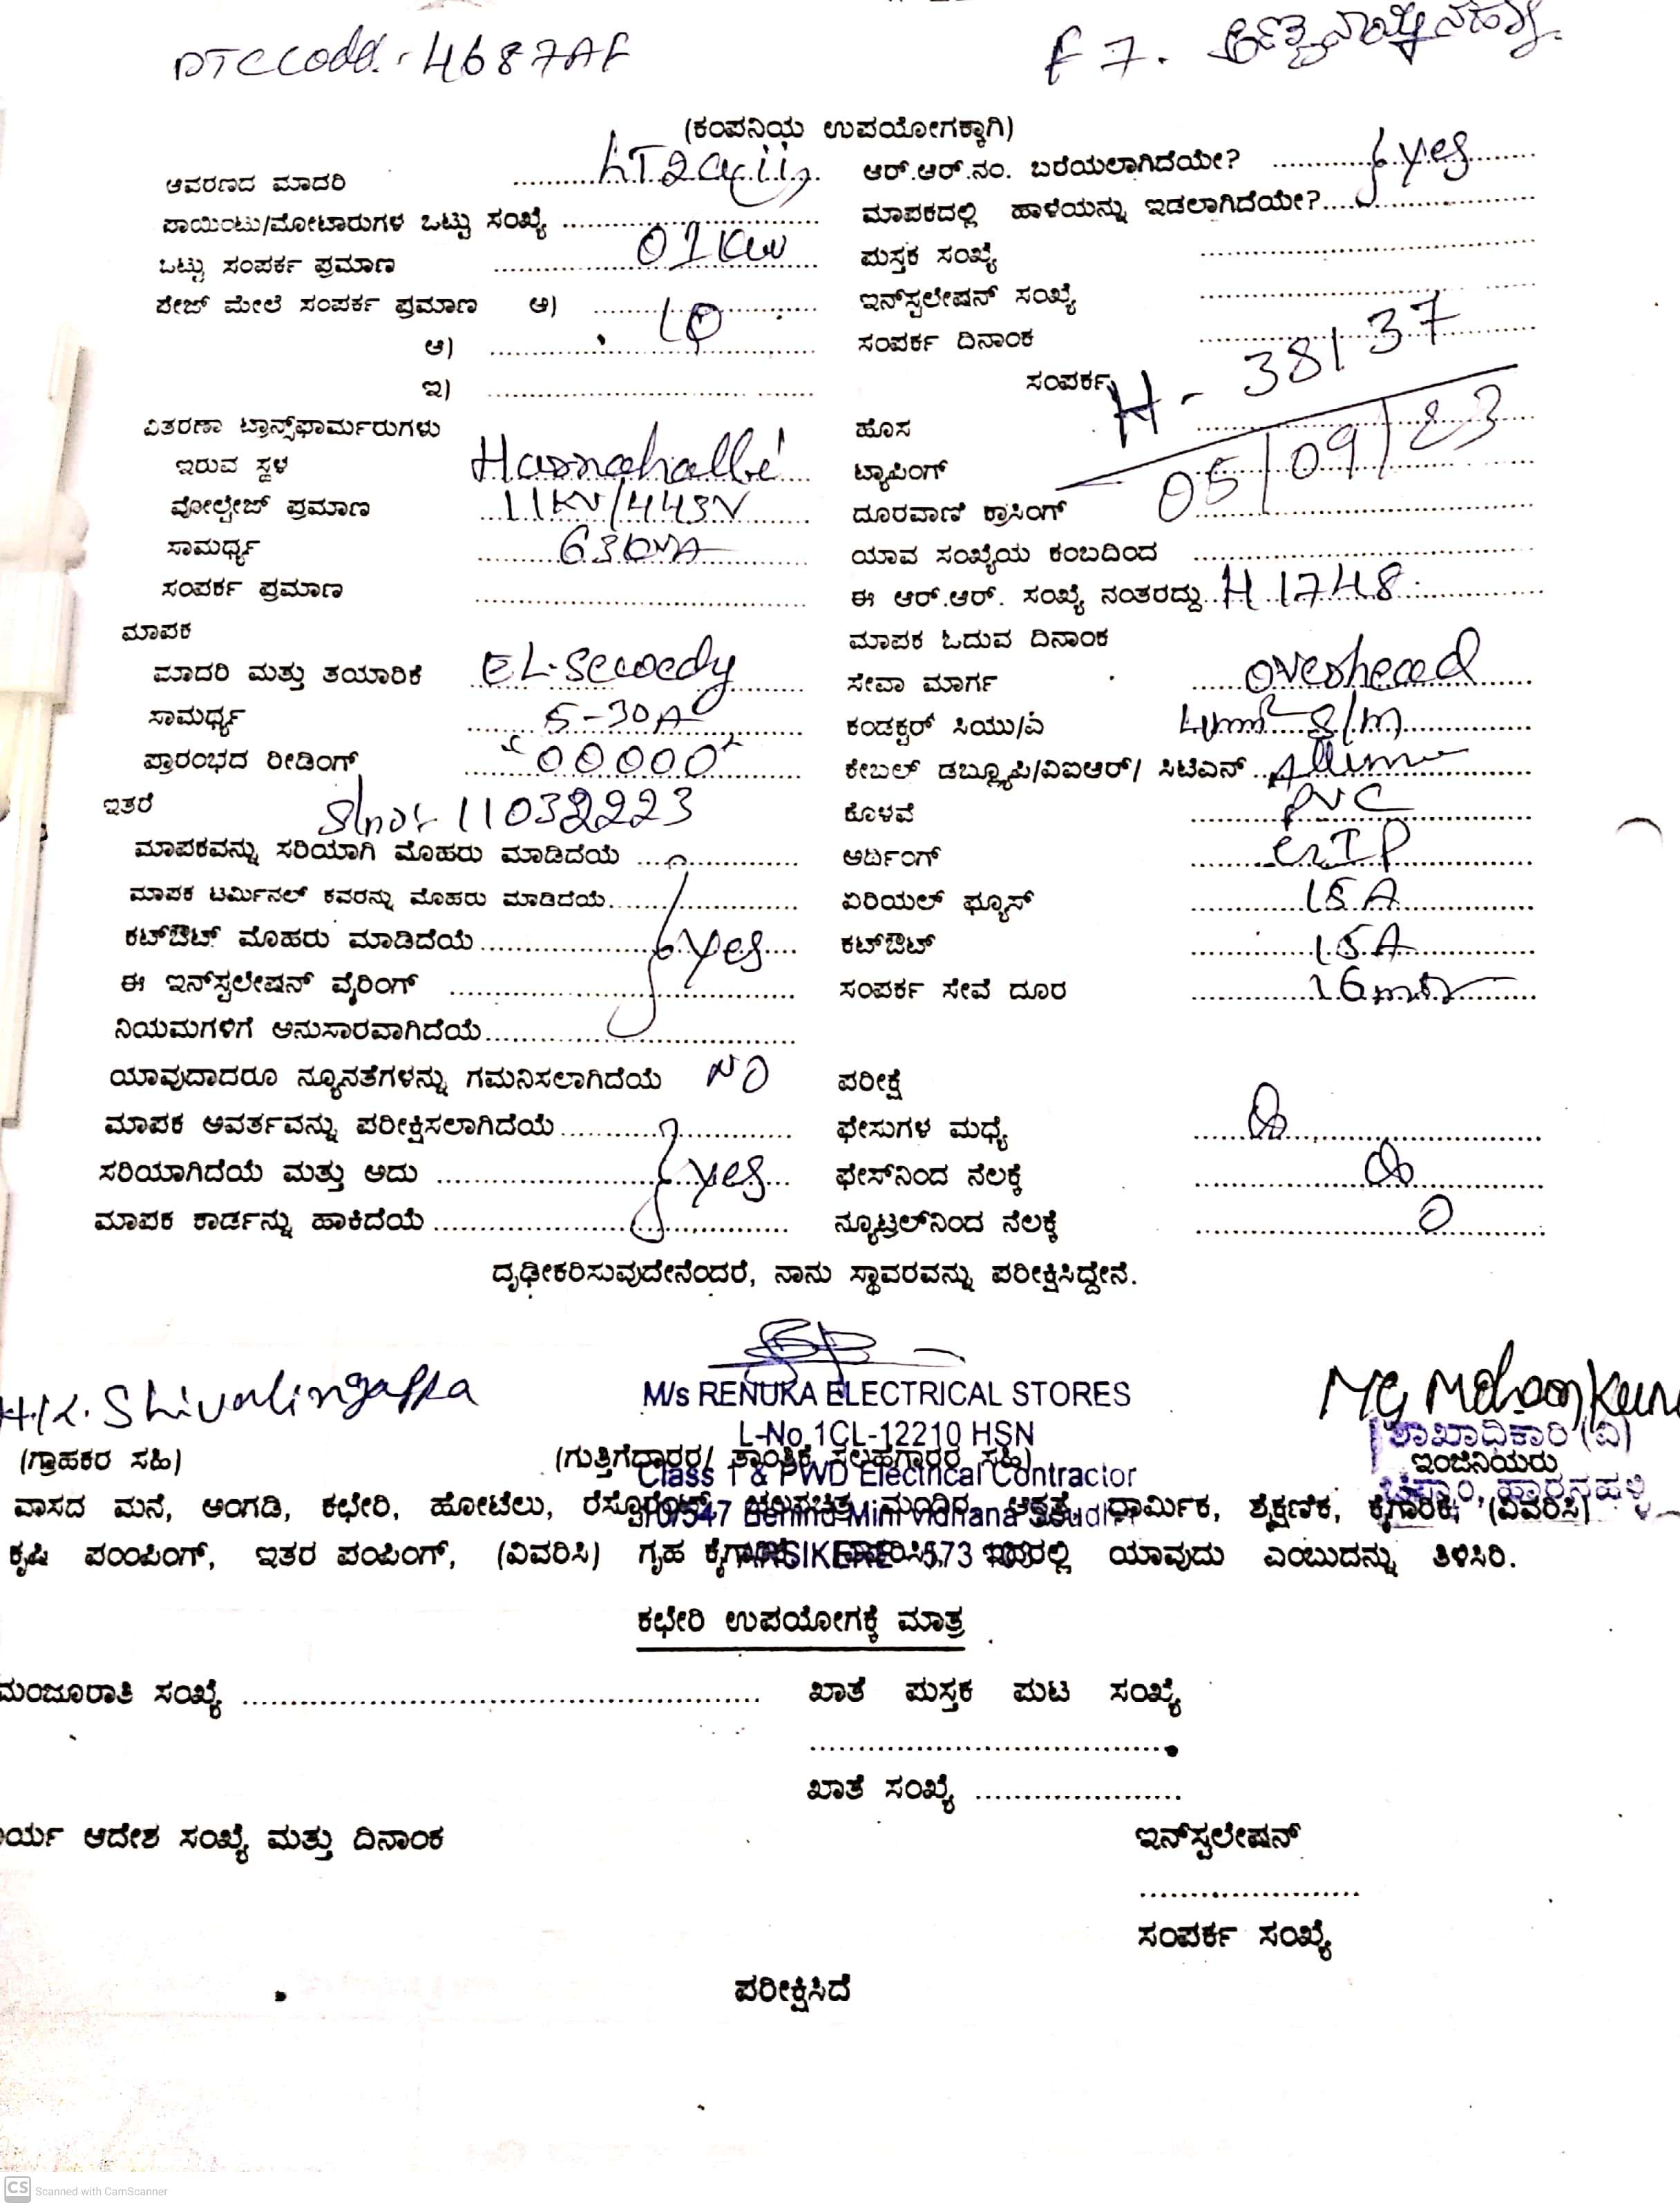 DTC Code: 4687AF
F 7.
(ಕಂಪನಿಯ ಉಪಯೋಗಕ್ಕಾಗಿ)
ಆವರಣದ ಮಾದರಿ LT2a(ii) ಆರ್.ಆರ್.ನಂ. ಬರೆಯಲಾಗಿದೆಯೇ? yes
ಪಾಯಿಂಟು/ಮೋಟಾರುಗಳ ಒಟ್ಟು ಸಂಖ್ಯೆ ಮಾಪಕದಲ್ಲಿ ಹಾಳೆಯನ್ನು ಇಡಲಾಗಿದೆಯೇ?
ಒಟ್ಟು ಸಂಪರ್ಕ ಪ್ರಮಾಣ 01 KW ಪುಸ್ತಕ ಸಂಖ್ಯೆ
ಪೇಜ್ ಮೇಲೆ ಸಂಪರ್ಕ ಪ್ರಮಾಣ ಅ) 1Φ ಇನ್‌ಸ್ಟಲೇಷನ್ ಸಂಖ್ಯೆ
ಆ) ಸಂಪರ್ಕ ದಿನಾಂಕ
ಇ) ಸಂಪರ್ಕ H - 38137
ವಿತರಣಾ ಟ್ರಾನ್ಸ್‌ಫಾರ್ಮರುಗಳು ಹೊಸ
ಇರುವ ಸ್ಥಳ Harnahalli ಟ್ಯಾಪಿಂಗ್ 05/09/23
ವೋಲ್ಟೇಜ್ ಪ್ರಮಾಣ 11KV/443V ದೂರವಾಣಿ ಕ್ರಾಸಿಂಗ್
ಸಾಮರ್ಥ್ಯ ಯಾವ ಸಂಖ್ಯೆಯ ಕಂಬದಿಂದ
ಸಂಪರ್ಕ ಪ್ರಮಾಣ ಈ ಆರ್.ಆರ್. ಸಂಖ್ಯೆ ನಂತರದ್ದು H 1748
ಮಾಪಕ ಮಾಪಕ ಓದುವ ದಿನಾಂಕ
ಮಾದರಿ ಮತ್ತು ತಯಾರಿಕೆ EL-Sewedy ಸೇವಾ ಮಾರ್ಗ overhead
ಸಾಮರ್ಥ್ಯ 5-30A ಕಂಡಕ್ಟರ್ ಸಿಯು/ಎ 4mm² S/m
ಪ್ರಾರಂಭದ ರೀಡಿಂಗ್ "00000" ಕೇಬಲ್ ಡಬ್ಲ್ಯೂಪಿ/ವಿಐಆರ್/ ಸಿಟಿಎನ್
ಇತರೆ Slno:- 11032223 ಕೊಳವೆ PVC
ಮಾಪಕವನ್ನು ಸರಿಯಾಗಿ ಮೊಹರು ಮಾಡಿದೆಯೆ ಅರ್ದಿಂಗ್
ಮಾಪಕ ಟರ್ಮಿನಲ್ ಕವರನ್ನು ಮೊಹರು ಮಾಡಿದೆಯೆ ಏರಿಯಲ್ ಫ್ಯೂಸ್ 15A
ಕಟ್‌ಔಟ್ ಮೊಹರು ಮಾಡಿದೆಯೆ yes ಕಟ್‌ಔಟ್ 15A
ಈ ಇನ್‌ಸ್ಟಲೇಷನ್ ವೈರಿಂಗ್ ಸಂಪರ್ಕ ಸೇವೆ ದೂರ 16 mtr
ನಿಯಮಗಳಿಗೆ ಅನುಸಾರವಾಗಿದೆಯೆ
ಯಾವುದಾದರೂ ನ್ಯೂನತೆಗಳನ್ನು ಗಮನಿಸಲಾಗಿದೆಯೆ NO ಪರೀಕ್ಷೆ
ಮಾಪಕ ಆವರ್ತವನ್ನು ಪರೀಕ್ಷಿಸಲಾಗಿದೆಯೆ ಫೇಸುಗಳ ಮಧ್ಯೆ
ಸರಿಯಾಗಿದೆಯೆ ಮತ್ತು ಅದು yes ಫೇಸ್‌ನಿಂದ ನೆಲಕ್ಕೆ
ಮಾಪಕ ಕಾರ್ಡನ್ನು ಹಾಕಿದೆಯೆ ನ್ಯೂಟ್ರಲ್‌ನಿಂದ ನೆಲಕ್ಕೆ 0
ದೃಢೀಕರಿಸುವುದೇನೆಂದರೆ, ನಾನು ಸ್ಥಾವರವನ್ನು ಪರೀಕ್ಷಿಸಿದ್ದೇನೆ.
H.K. Shivalingappa M/s RENUKA ELECTRICAL STORES
L-No 1CL-12210 HSN ಶಾಖಾಧಿಕಾರಿ (ವಿ)
(ಗ್ರಾಹಕರ ಸಹಿ) (ಗುತ್ತಿಗೆದಾರರ/ ತಾಂತ್ರಿಕ ಸಲಹೆಗಾರರ ಸಹಿ) ಇಂಜಿನಿಯರು
Class 1 & PWD Electrical Contractor ಹಾರನಹಳ್ಳಿ
ವಾಸದ ಮನೆ, ಅಂಗಡಿ, ಕಛೇರಿ, ಹೋಟೆಲು, ರೆಸ್ಟೋರೆಂಟ್, ಚಲನಚಿತ್ರ ಮಂದಿರ, ಆಸ್ಪತ್ರೆ, ಧಾರ್ಮಿಕ, ಶೈಕ್ಷಣಿಕ, ಕೈಗಾರಿಕೆ, (ವಿವರಿಸಿ)
Behind Mini Vidhana Soudha
ಕೃಷಿ ಪಂಂಪಿಂಗ್, ಇತರ ಪಂಪಿಂಗ್, (ವಿವರಿಸಿ) ಗೃಹ ಕೈಗಾರಿಕೆ ಇದರಲ್ಲಿ ಯಾವುದು ಎಂಬುದನ್ನು ತಿಳಿಸಿರಿ.
ARSIKERE - 573 103
ಕಛೇರಿ ಉಪಯೋಗಕ್ಕೆ ಮಾತ್ರ
ಮಂಜೂರಾತಿ ಸಂಖ್ಯೆ ಖಾತೆ ಪುಸ್ತಕ ಪುಟ ಸಂಖ್ಯೆ
ಖಾತೆ ಸಂಖ್ಯೆ
ಆದೇಶ ಸಂಖ್ಯೆ ಮತ್ತು ದಿನಾಂಕ ಇನ್‌ಸ್ಟಲೇಷನ್
ಸಂಪರ್ಕ ಸಂಖ್ಯೆ
ಪರೀಕ್ಷಿಸಿದೆ
CS Scanned with CamScanner